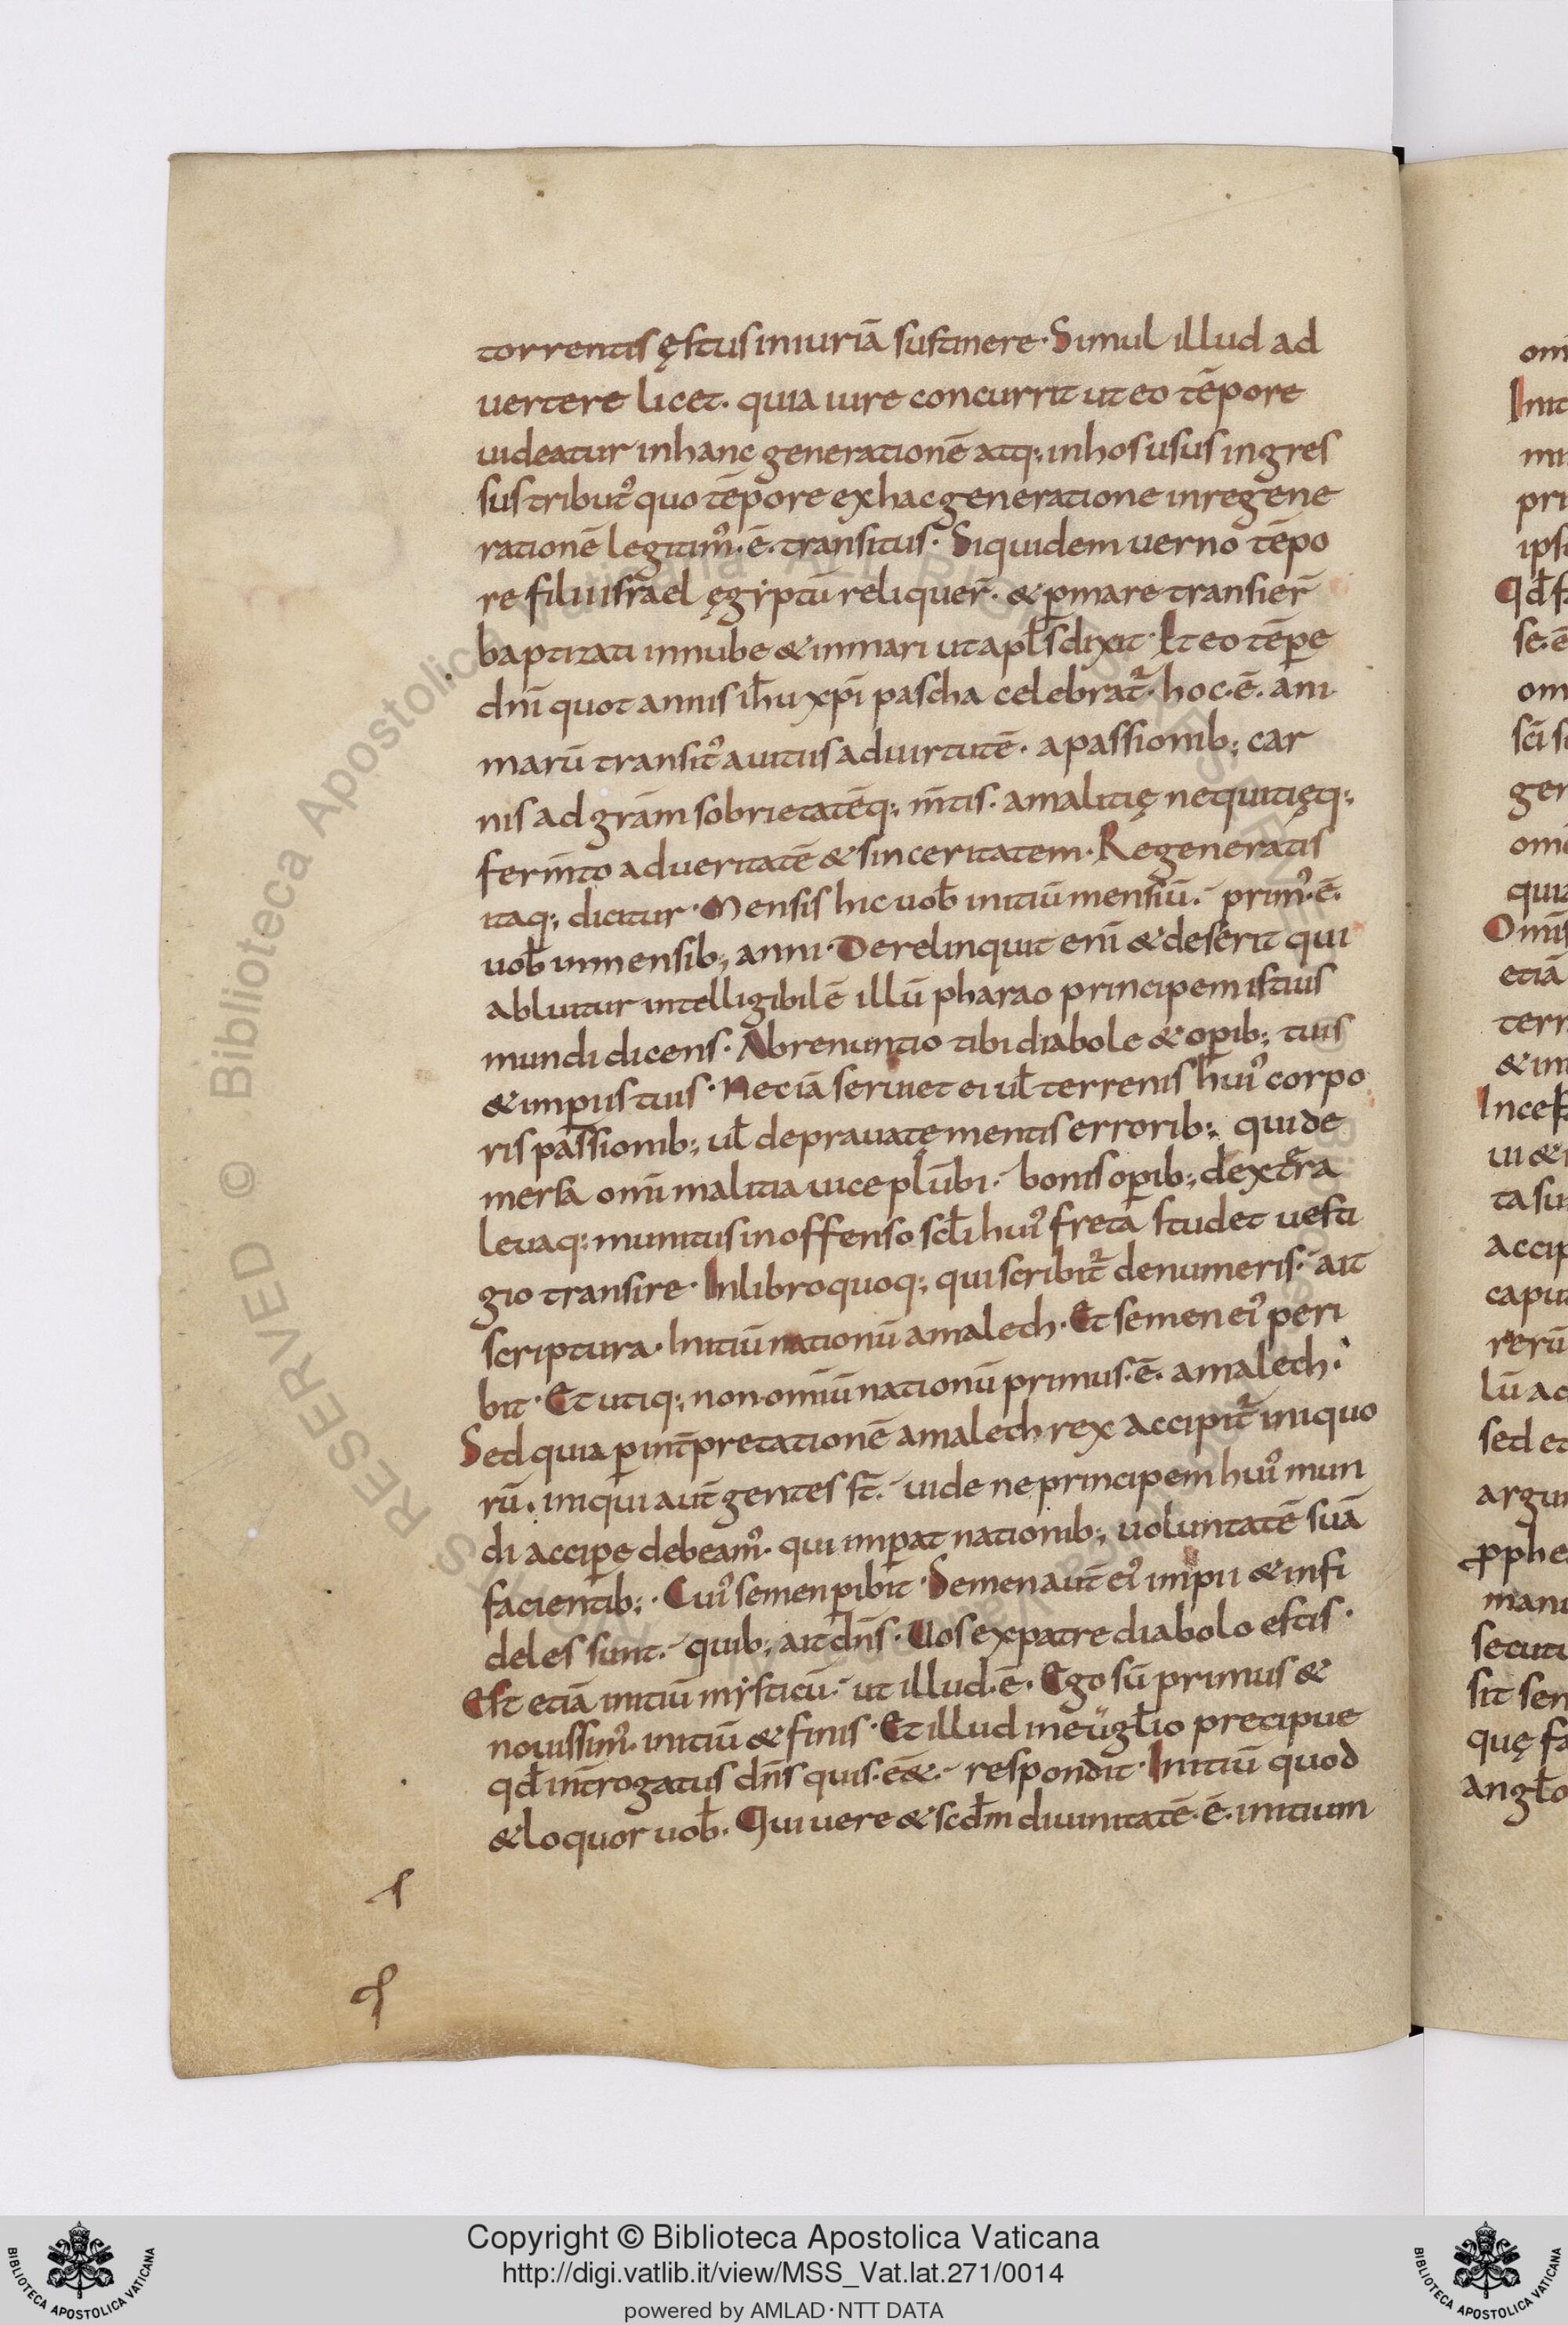 torrentis ęstus iniuriā sustinere· Simul illud ad
uertere licet· quia iure concurrit ut eo tēpore
uideatur in hanc generationē atq; in hos usus ingres
sus tribuit᾽ quo tēpore ex hac generatione in regene
rationē legitim᾽·ē· transitus· Siquidem uerno tēpo
re filii isrāel ęgẏptū reliquer̄· & p̱ mare transier̄
baptizati in nube & in mari ut apl̄s dixit· Et eo tēp̱e
dn̄i quot annis ih̄u xp̄i pascha celebrat᾽· hoc·ē· ani
marū transit᾽ a uitiis ad uirtutē· a passionib; car
nis ad grām sobrietatēq; m̄tis· a malitię nequitięq;
ferm̄to ad ueritatē & sinceritatem· Regeneratis
itaq; dicitur· Mensis hic uob̄ initiū mensiū· prim᾽·ē·
uob̄ in mensib; anni· Derelinquit eni᷒ & deserit qui
abluitur intelligibilē illū pharao principem istius
mundi dicens· Abrenuntio tibi diabole & op̱ib; tuis
& imp̱iis tuis· Nec iā seruiet ei ul̄ terrenis hui᾽ corpo
ris passionib; ul̄ deprauatę mentis errorib; qui de
mersa omi᷒ malitia uice plūbi· bonis op̱ib; dextera
leuaq; munitus inoffenso scl̄i hui᾽ freta studet uesti
gio transire· In libro quoq; qui scribit᾽ de numeris· ait
scriptura· Initiū nationū amalech· Et semen ei᾽ peri
bit· Et utiq; non omiū nationū primus·ē· amalech·
Sed quia p̱ int̄pretationē amalech rex accipit᾽ iniquo
rū· iniqui aut̄ gentes st̄· uide ne principem hui᾽ mun
di accip̱e debeam᾽· qui imp̱at nationib; uoluntatē suā
facientib;· Cui᾽ semen p̱ibit· Semen aut̄ ei᾽ impii & infi
deles sunt· quib; ait dn̄s· Uos ex patre diabolo estis·
Est etiā initiū mẏsticū· ut illud·ē· Ego sū primus &
nouissim᾽· initiū & finis· Et illud in eūgl̄io precipue
qd̄ int̄rogatus dn̄s quis·ē&· respondit· Initiū quod
& loquor uob̄· Qui uere & scd̄m diuinitatē·ē· initium
Copyright © Biblioteca Apostolica Vaticana
http://digi.vatlib.it/view/MSS_Vat.lat.271/0014
powered by AMLAD·NTT DATA
BIBLIOTECA APOSTOLICA VATICANA
BIBLIOTECA APOSTOLICA VATICANA